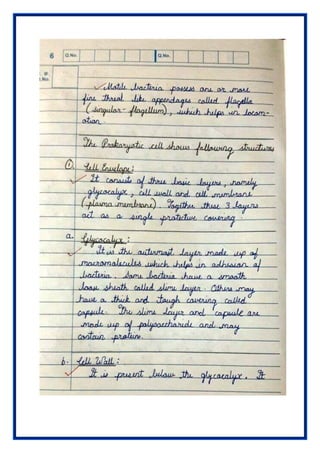 6 Q.No. Q.No.
Motile bacteria possess one or more
fine thread like appendages called flagella
(singular- flagellum), which helps in locom-
otion.
The Prokaryotic cell shows following structures
① Cell Envelope:
It consists of three basic layers, namely
glycocalyx, cell wall and cell membrane
(plasma membrane). Together these 3 layers
act as a single protective covering.
a. Glycocalyx:
It is the outermost layer made up of
macromolecules which helps in adhesion of
bacteria. Some bacteria have a smooth
loose sheath called slime layer. Others may
have a thick and tough covering called
capsule. The slime layer and capsule are
made up of polysaccharide and may
contain protein.
b. Cell Wall:
It is present below the glycocalyx. It